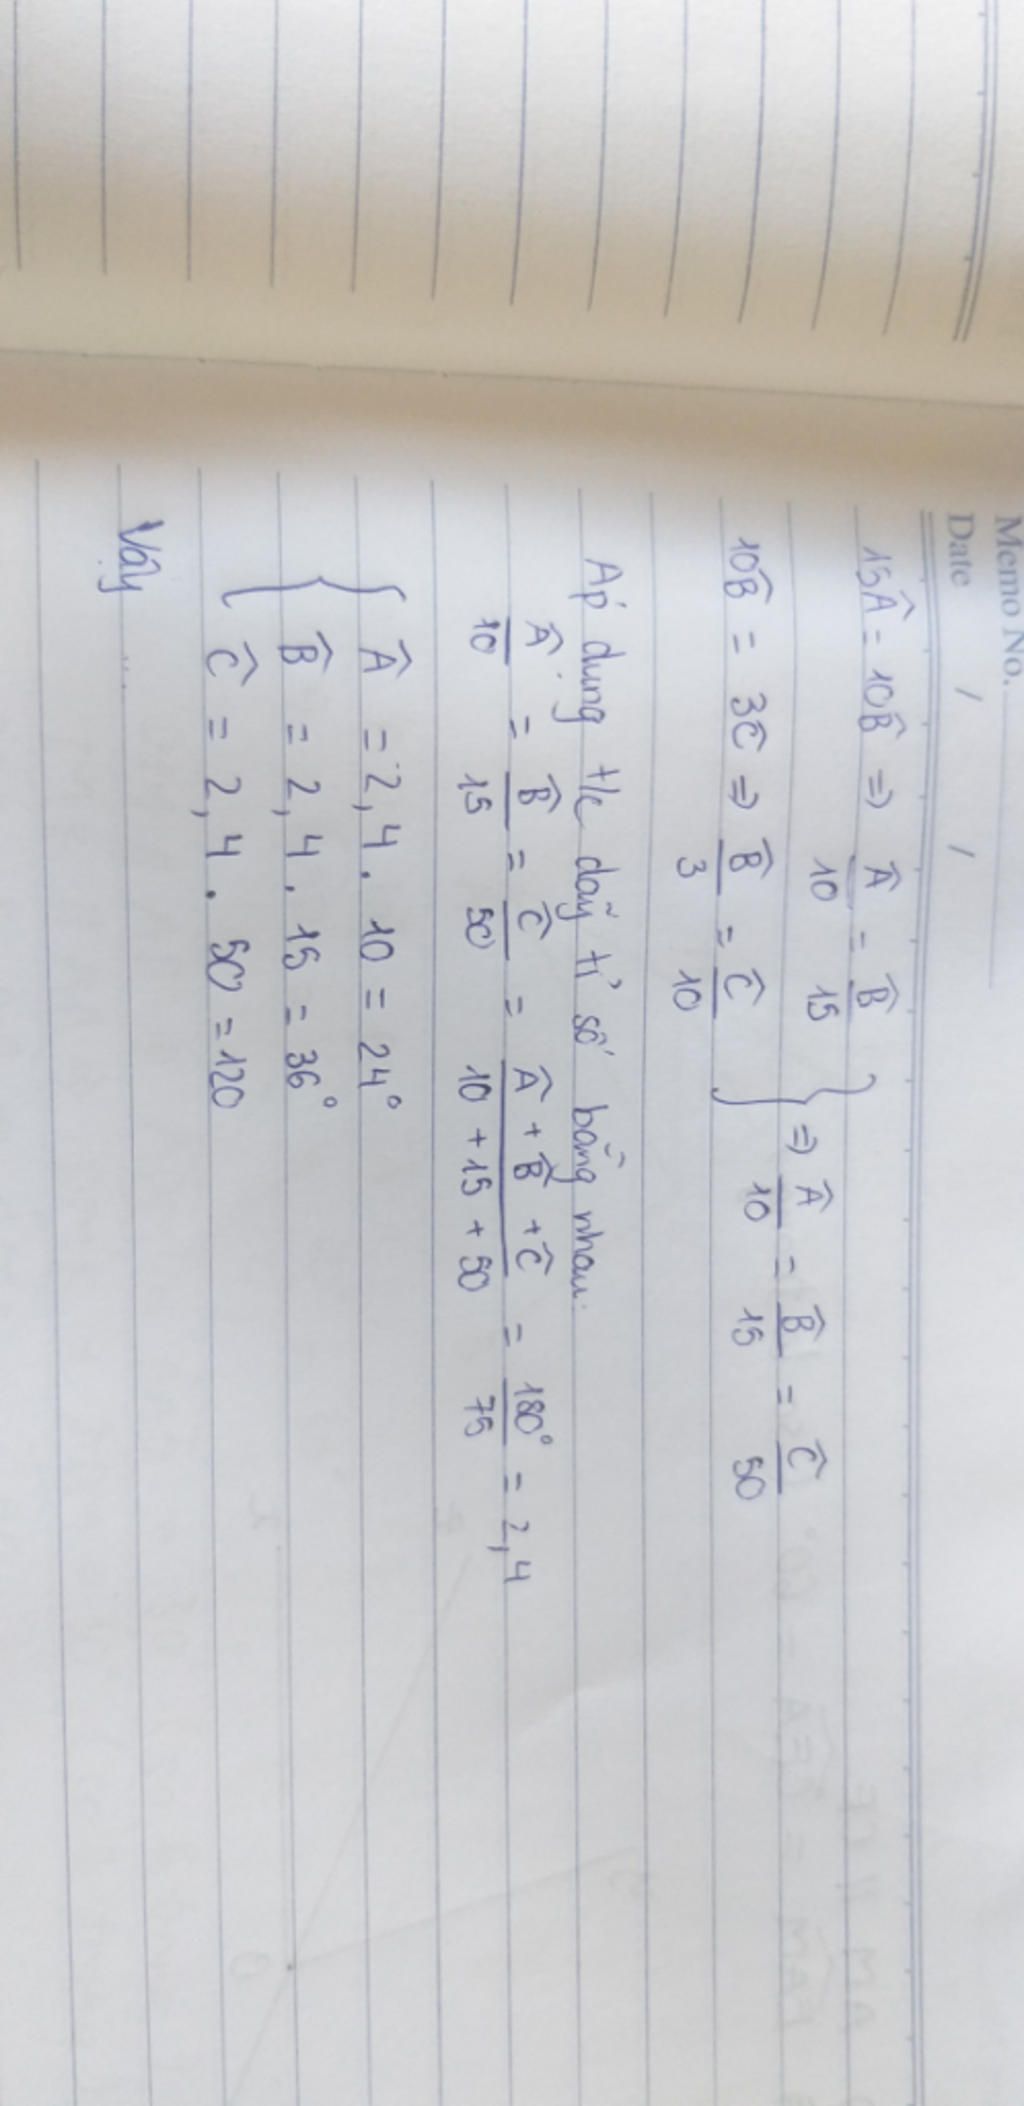 Memo No.
Date / /
15Â = 10B̂ => Â/10 = B̂/15
10B̂ = 3Ĉ => B̂/3 = Ĉ/10 } => Â/10 = B̂/15 = Ĉ/50
Áp dụng t/c dãy tỉ số bằng nhau:
Â/10 = B̂/15 = Ĉ/50 = (Â + B̂ + Ĉ)/(10 + 15 + 50) = 180°/75 = 2,4
{ Â = 2,4 . 10 = 24°
B̂ = 2,4 . 15 = 36°
Ĉ = 2,4 . 50 = 120
Vậy ...